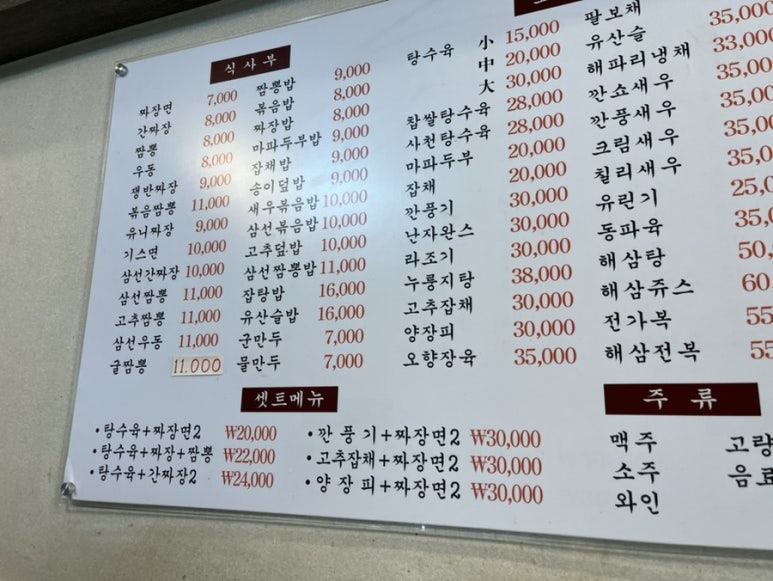 식사부
짜장면 7,000
간짜장 8,000
짬뽕 8,000
우동 8,000
쟁반짜장 9,000
볶음짬뽕 11,000
유니짜장 9,000
기스면 10,000
삼선간짜장 10,000
삼선짬뽕 11,000
고추짬뽕 11,000
삼선우동 11,000
굴짬뽕 11.000
짬뽕밥 9,000
볶음밥 8,000
짜장밥 8,000
마파두부밥 9,000
잡채밥 9,000
송이덮밥 9,000
새우볶음밥 10,000
삼선볶음밥 10,000
고추덮밥 10,000
삼선짬뽕밥 11,000
잡탕밥 16,000
유산슬밥 16,000
군만두 7,000
물만두 7,000
탕수육 小 15,000
中 20,000
大 30,000
찹쌀탕수육 28,000
사천탕수육 28,000
마파두부 20,000
잡채 20,000
깐풍기 30,000
난자완스 30,000
라조기 30,000
누룽지탕 38,000
고추잡채 30,000
양장피 30,000
오향장육 35,000
팔보채
유산슬 35,000
해파리냉채 33,000
깐쇼새우 35,000
깐풍새우 35,000
크림새우 35,0
칠리새우 35,0
유린기 25,0
동파육 35,
해삼탕 50,
해삼쥬스 60
전가복 55
해삼전복 55
셋트메뉴
• 탕수육+짜장면2 ₩20,000
• 탕수육+짜장+짬뽕 ₩22,000
• 탕수육+간짜장2 ₩24,000
• 깐풍기+짜장면2 ₩30,000
• 고추잡채+짜장면2 ₩30,000
• 양장피+짜장면2 ₩30,000
주류
맥주 고량
소주 음료
와인